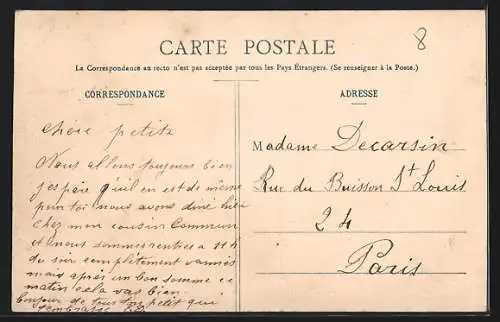 8
CARTE POSTALE
La Correspondance au recto n'est pas acceptée par tous les Pays Étrangers. (Se renseigner à la Poste.)
CORRESPONDANCE
chère petite
Nous allons toujours bien
j'espère qu'il en est de même
pour toi nous avons diné hier
chez mon cousin Commun
et nous sommes rentrés a 11 h
du soir complètement vannés
mais après un bon somme ce
matin cela vas bien
bonjour de tous ton petit qui
t'embrasse
ADRESSE
Madame Decarsin
Rue du Buisson St Louis
24
Paris